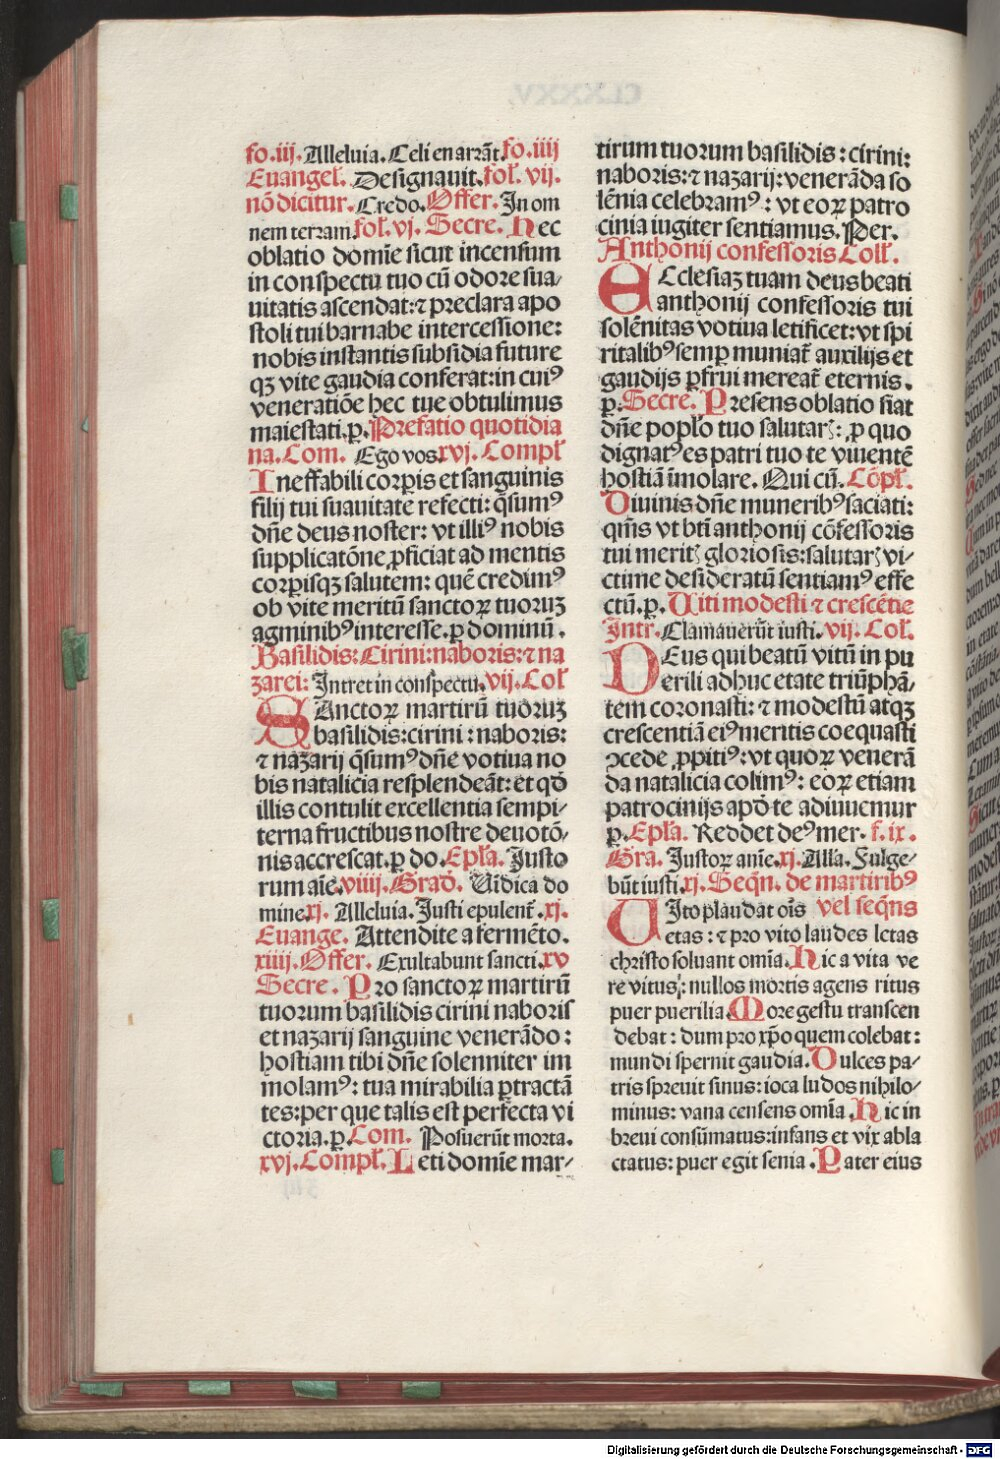 fo.iij. Alleluia. Celi enarrãt. fo.iiij
Euangeł. Designauit. fol. vij.
nō dicitur. Credo. Offer. In om
nem terram. fol. vj. Secre. Hec
oblatio domĩe sicut incensum
in conspectu tuo cū odore sua/
uitatis ascendat: ⁊ preclara apo
stoli tui barnabe intercessione:
nobis instantis subsidia future
qꝫ vite gaudia conferat: in cuiꝰ
veneratiōe hec tue obtulimus
maiestati. p. Prefatio quotidia
na. Com. Ego vos. xvj. Compł
Ineffabili corꝑis et sanguinis
filij tui suauitate refecti: q̃sumꝰ
dñe deus noster: vt illiꝰ nobis
supplicatōne ꝓficiat ad mentis
corꝑisqꝫ salutem: quē credimꝰ
ob vite meritū sanctoꝝ tuoruꝫ
agminibꝰ interesse. p dominū.
Basilidis: Cirini: naboris: ⁊ na
zarei: Intret in conspectu. vij. Coł
SAnctoꝝ martirū tuoruꝫ
basilidis: cirini: naboris:
⁊ nazarij q̃sumꝰ dñe votiua no
bis natalicia resplendeãt: et qd̃
illis contulit excellentia sempi/
terna fructibus nostre deuotō/
nis accrescat. p do. Epła. Justo
rum aĩe. viiij. Grad̃. Uidica do
mine. xj. Alleluia. Justi epulent̃. xj.
Euange. Attendite a fermēto.
xiiij. Offer. Exultabunt sancti. xv
Secre. Pro sanctoꝝ martirū
tuorum basilidis cirini naboris
et nazarij sanguine venerãdo:
hostiam tibi dñe solenniter im
molamꝰ: tua mirabilia ꝑtractã
tes: per que talis est perfecta vi
ctoria. p. Com. Posuerūt morta.
xvj. Compł. Leti domĩe mar/
tirum tuorum basilidis: cirini:
naboris: ⁊ nazarij: venerãda so
lēnia celebramꝰ: vt eoꝝ patro
cinia iugiter sentiamus. Per.
Anthonij confessoris Coll̃.
ECclesiaꝫ tuam deus beati
anthonij confessoris tui
solēnitas votiua letificet: vt spi
ritalibꝰ semꝑ muniat̃ auxilijs et
gaudijs ꝑfrui mereat̃ eternis.
p. Secre. Presens oblatio fiat
dñe popło tuo salutar̃: ꝑ quo
dignatꝰ es patri tuo te viuentē
hostiã ĩmolare. Qui cū. Cōpł.
Diuinis dñe muneribꝰ saciati:
q̃ms vt bt̃i anthonij cōfessoris
tui merit̃ gloriosis: salutar̃ vi/
ctime desideratū sentiamꝰ effe
ctū. p. Uiti modesti ⁊ crescētie
Intr. Clamauerūt iusti. vij. Coł.
DEus qui beatū vitū in pu
erili adhuc etate triūphã/
tem coronasti: ⁊ modestū atqꝫ
crescentiã eiꝰ meritis coequasti
ↄcede ꝓpitiꝰ: vt quoꝝ venerã
da natalicia colimꝰ: eoꝝ etiam
patrocinijs apd̃ te adiuuemur
p. Epła. Reddet deꝰ mer. f. ix.
Gra. Justoꝝ anĩe. xj. Alla. Fulge/
būt iusti. xj. Seqñ. de martiribꝰ
UIto plaudat oĩs vel seqñs
etas: ⁊ pro vito laudes letas
christo soluant omĩa. Hic a vita ve
re vitus: nullos mortis agens ritus
puer puerilia. More gestu transcen
debat: dum pro xp̃o quem colebat:
mundi spernit gaudia. Dulces pa/
tris spreuit sinus: ioca ludos nihilo/
minus: vana censens omĩa. Hic in
breui consūmatus: infans et vix abla
ctatus: puer egit senia. Pater eius
Digitalisierung gefördert durch die Deutsche Forschungsgemeinschaft - DFG